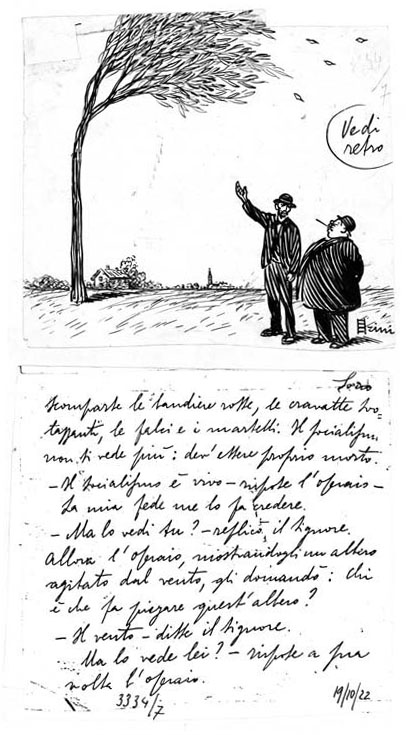 Vedi
retro
Scini
Scomparse le bandiere rosse, le cravatte svo=
lazzanti, le falci e i martelli. Il socialismo
non si vede più: dev'essere proprio morto.
– Il socialismo è vivo – rispose l'operaio –
La mia fede me lo fa credere.
– Ma lo vedi tu? – replicò il signore.
Allora l'operaio, mostrandogli un albero
agitato dal vento, gli domandò: Chi
è che fa piegare quest'albero?
– Il vento – disse il signore.
– Ma lo vede lei? – rispose a sua
volta l'operaio.
3334/7
19/10/22